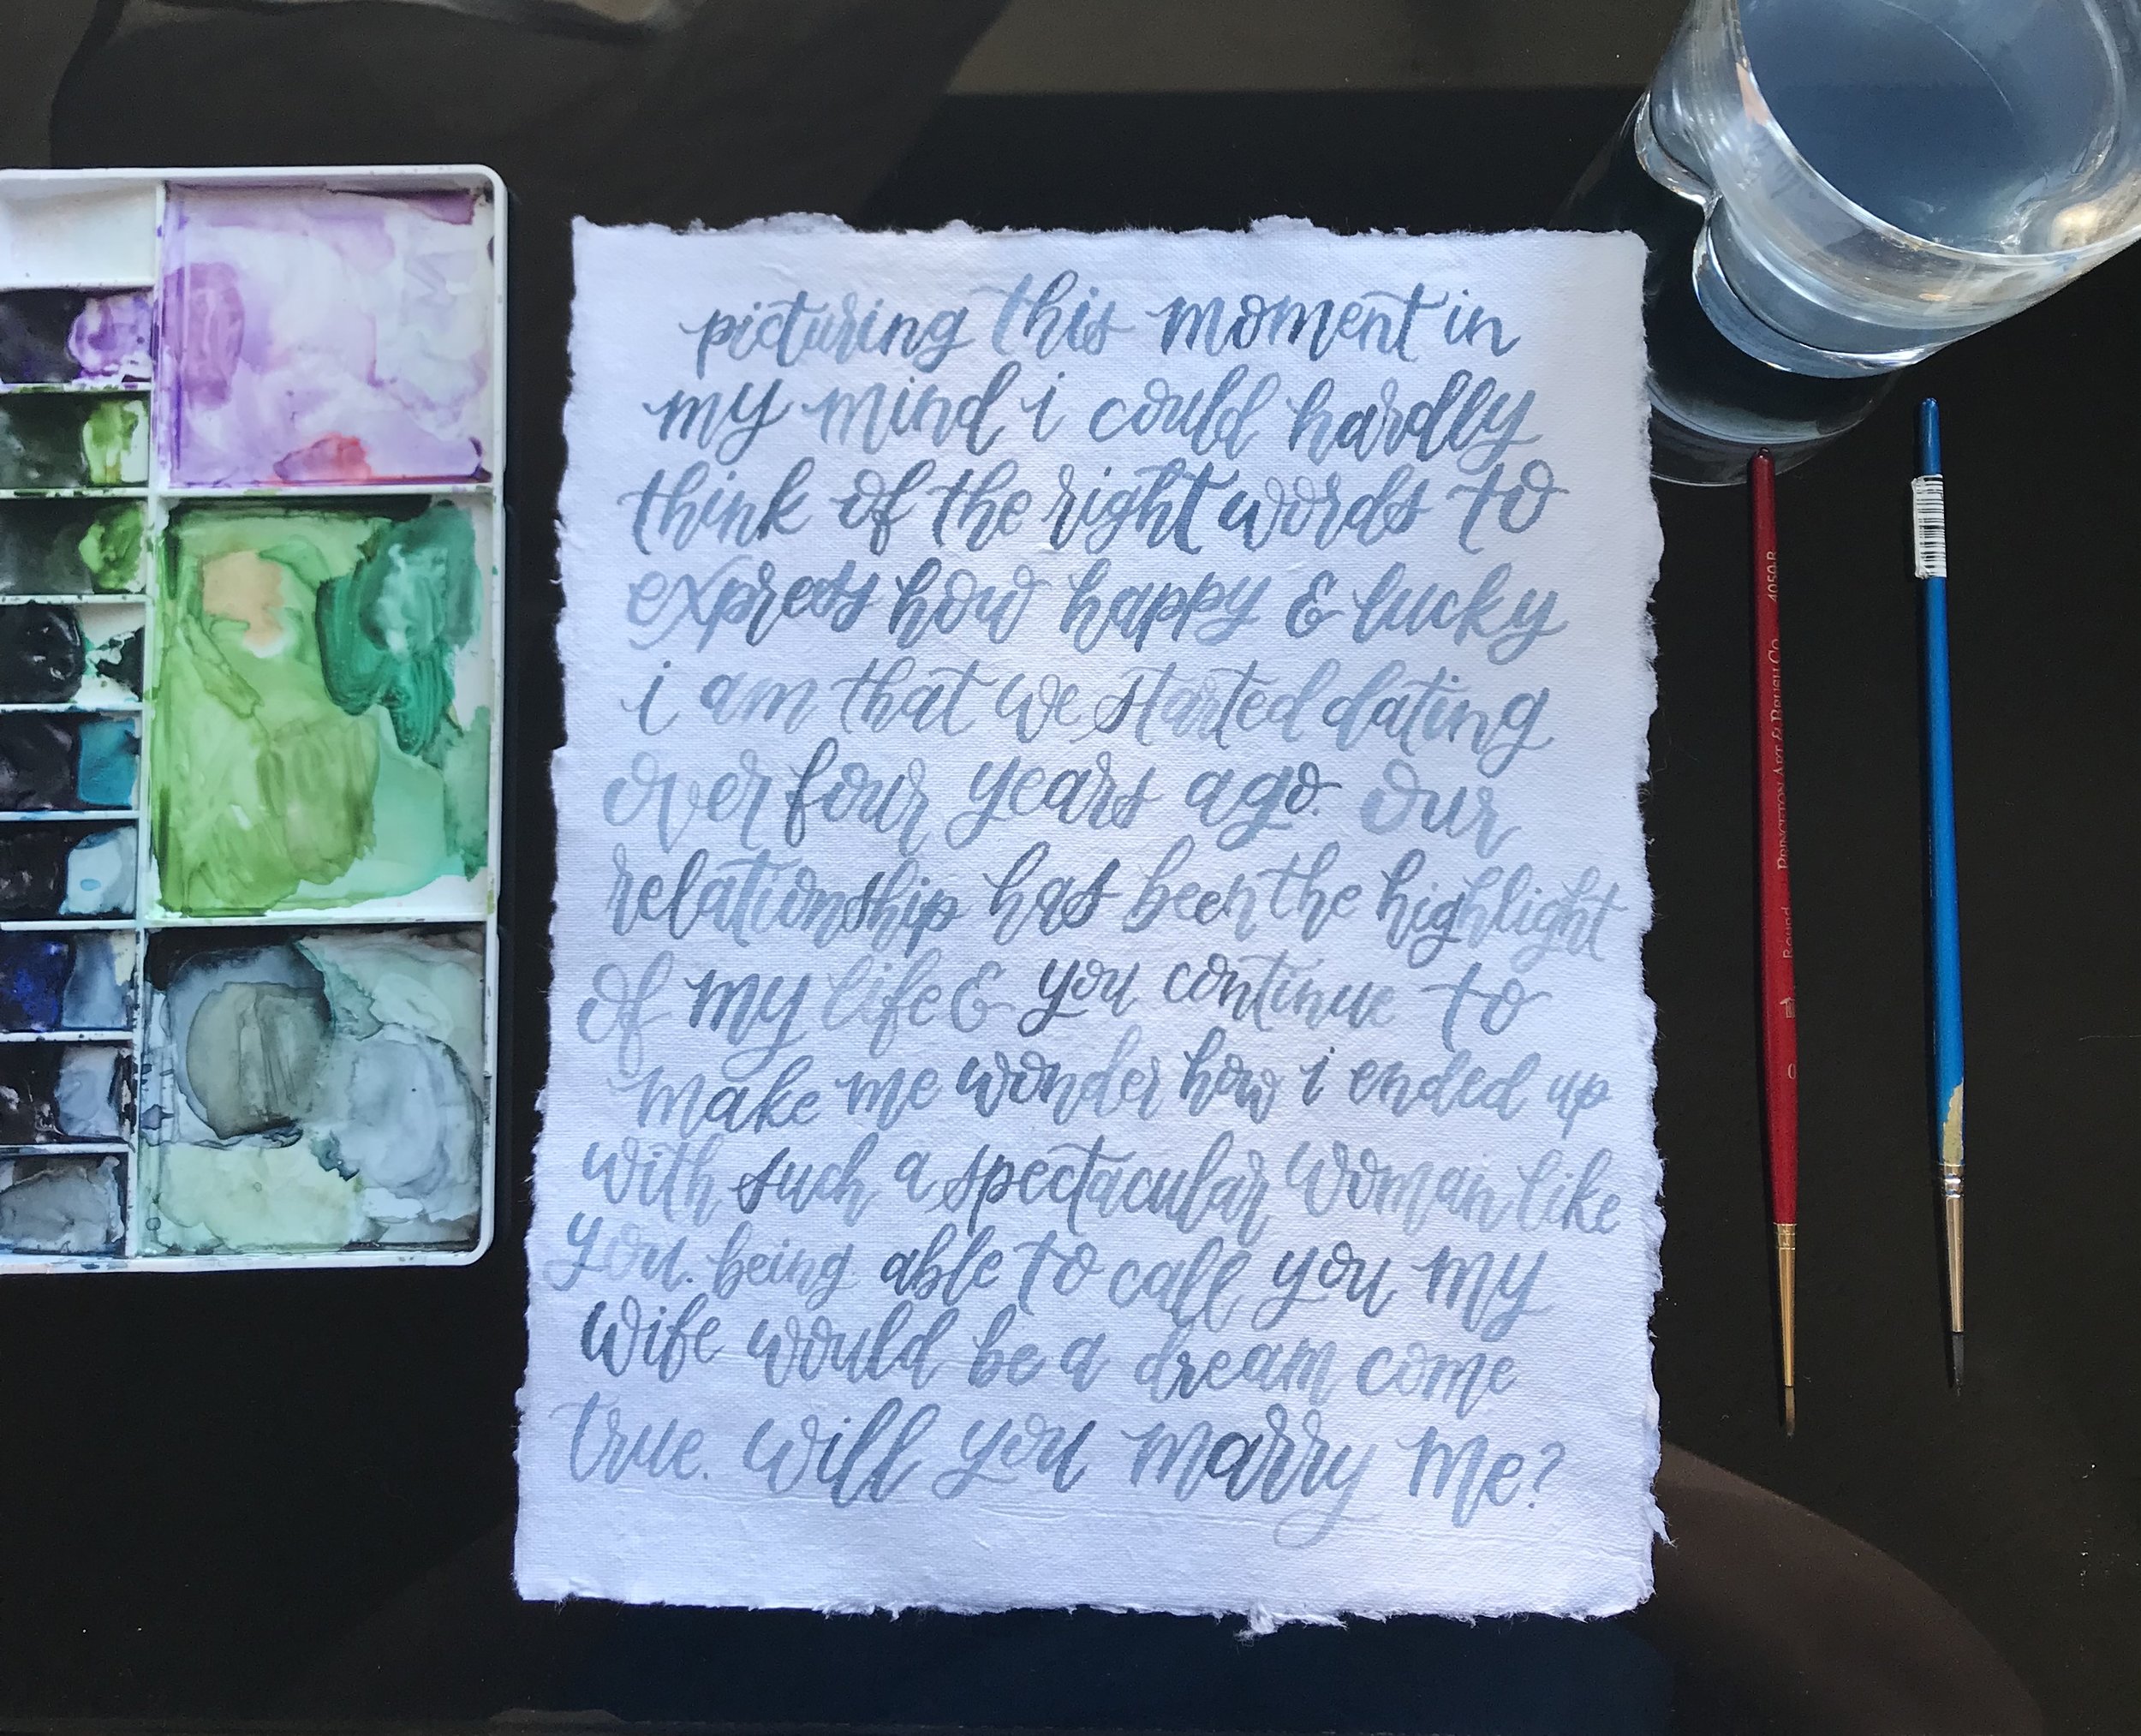 picturing this moment in
my mind i could hardly
think of the right words to
express how happy & lucky
i am that we started dating
over four years ago. our
relationship has been the highlight
of my life & you continue to
make me wonder how i ended up
with such a spectacular woman like
you. being able to call you my
wife would be a dream come
true. will you marry me?
4050R
Princeton Art & Brush Co
Round
0